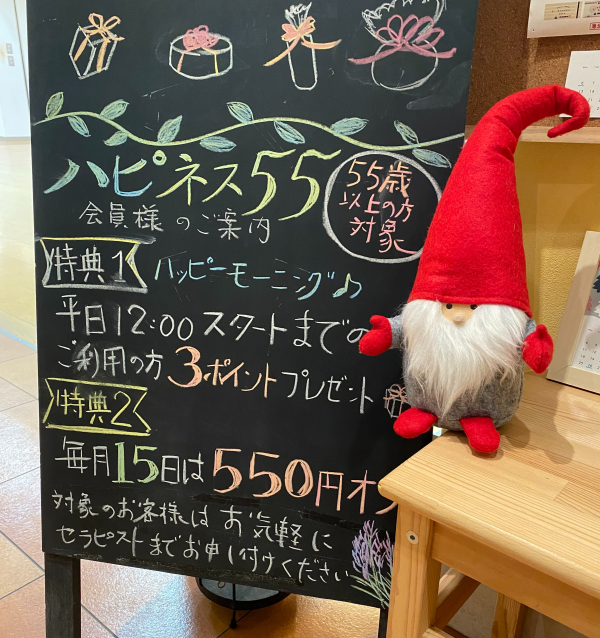 ハピネス55
会員様のご案内
55歳
以上の方
対象
特典1
ハッピーモーニング♪
平日12:00スタートまでの
ご利用の方 3ポイントプレゼント
特典2
毎月15日は550円オフ
対象のお客様はお気軽に
セラピストまでお申し付けください